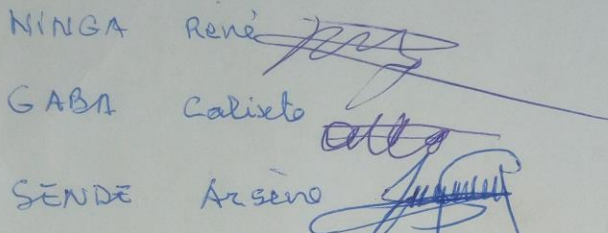 NINGA René
GABA Calixte
SENDE Arsène